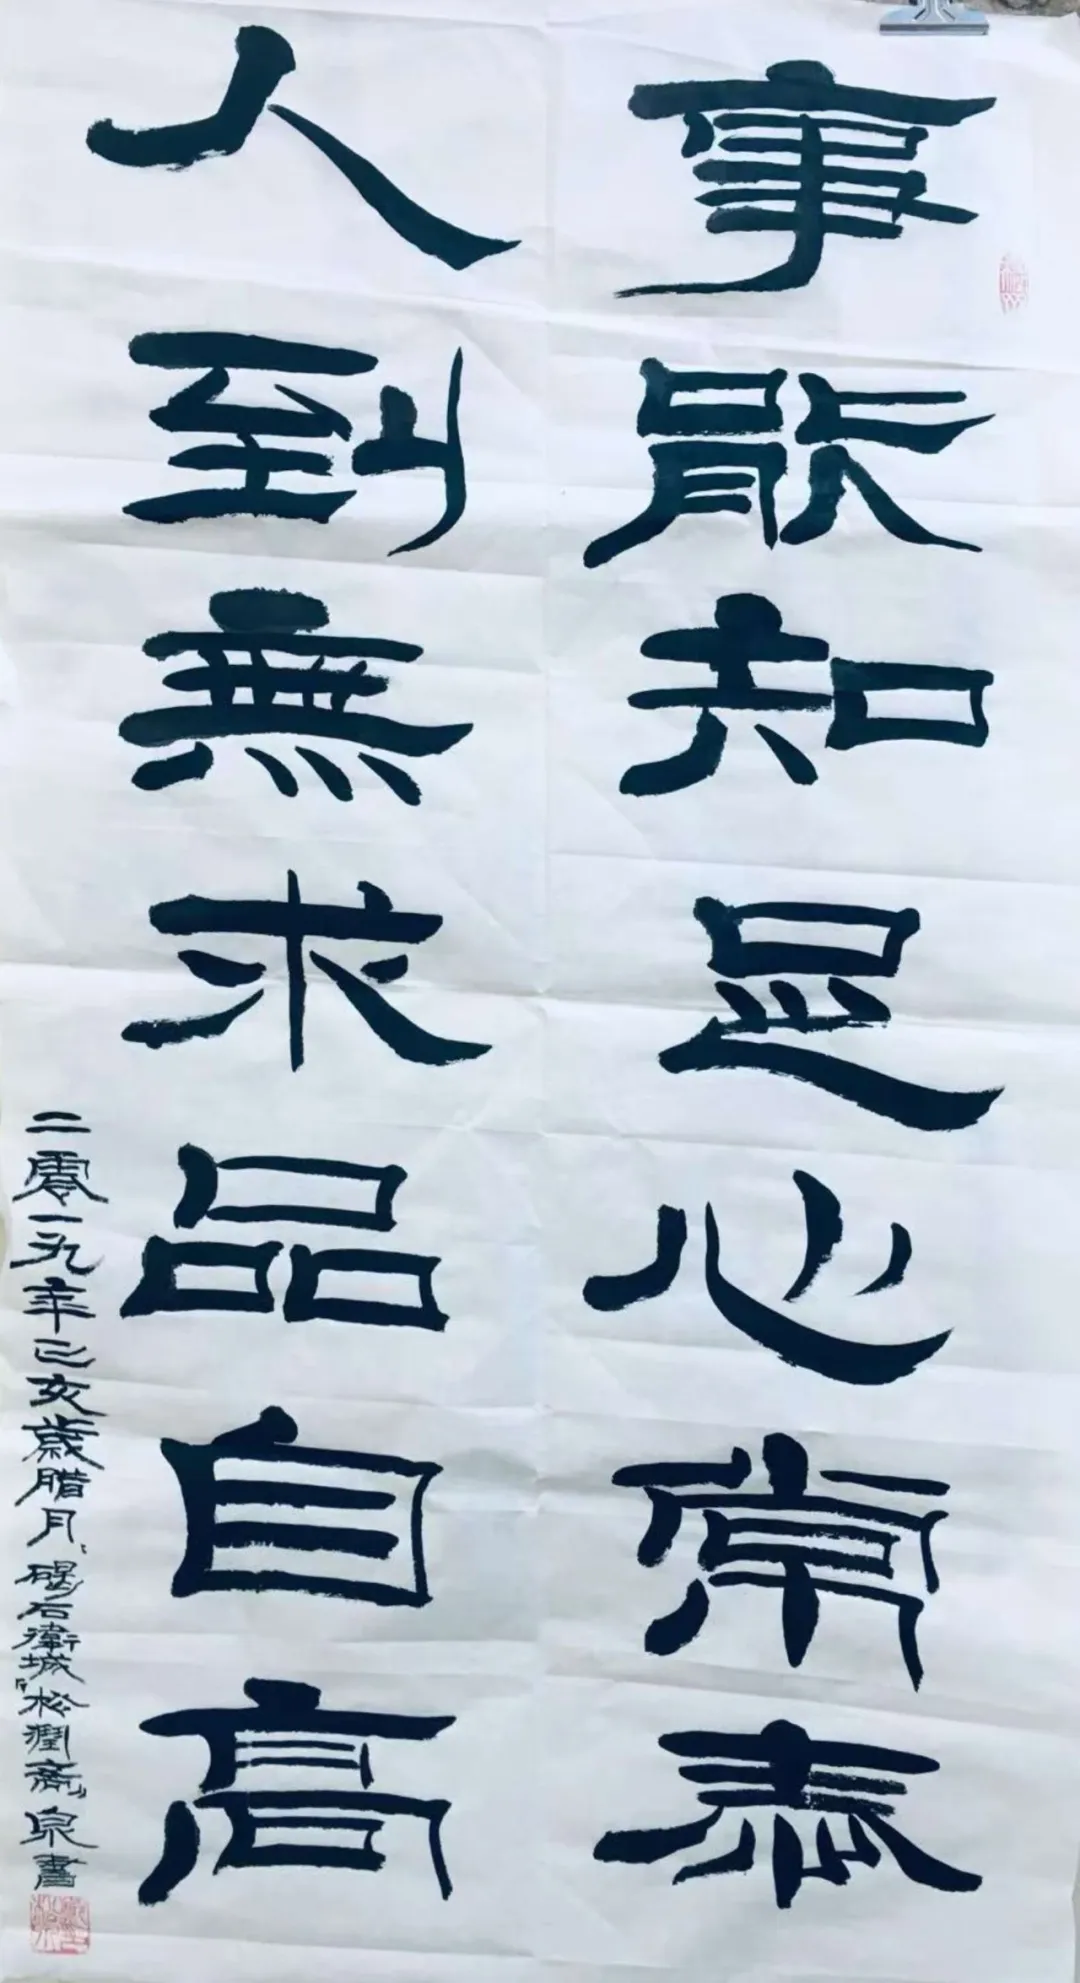 事能知足心常泰
人到無求品自高
二零一九年己亥歲腊月、碣石衛城"松潤斋"泉書